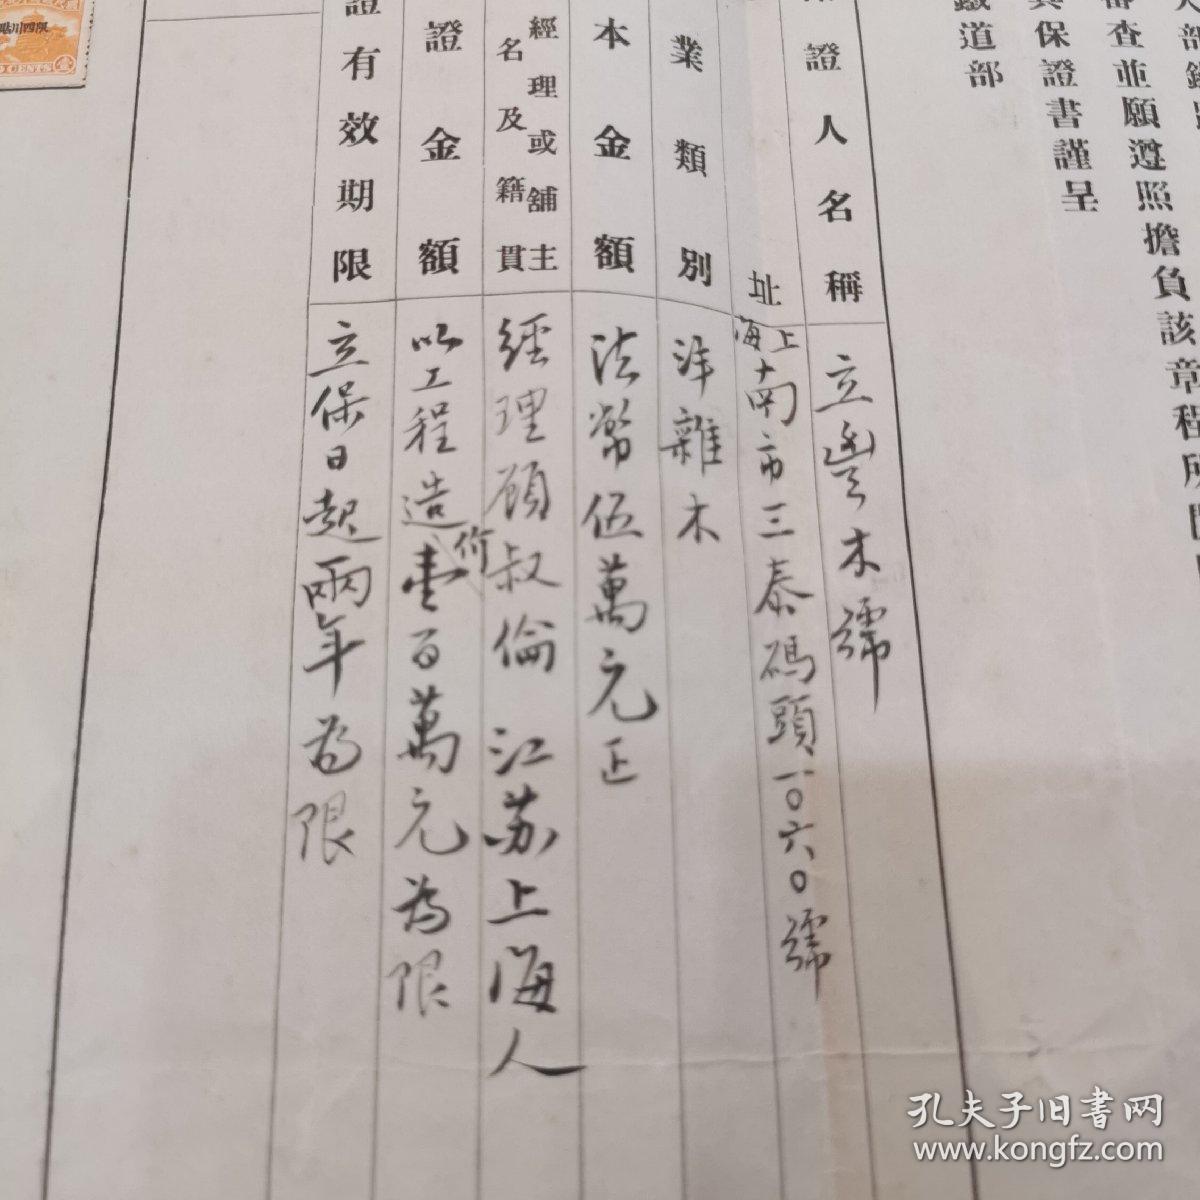 審查並願遵照擔負該章程所
具保證書謹呈
鐵道部
證人名稱 立豐木號
址 上海南市三泰碼頭一〇六〇號
業類別 洋雜木
本金額 法幣伍萬元正
經理或舖主名及籍貫 經理顧叔倫 江苏上海人
證金額 以工程造价壹百萬元為限
證有效期限 立保日起兩年為限
限四川貼
CENTS 壹
孔夫子旧书网
www.kongfz.com